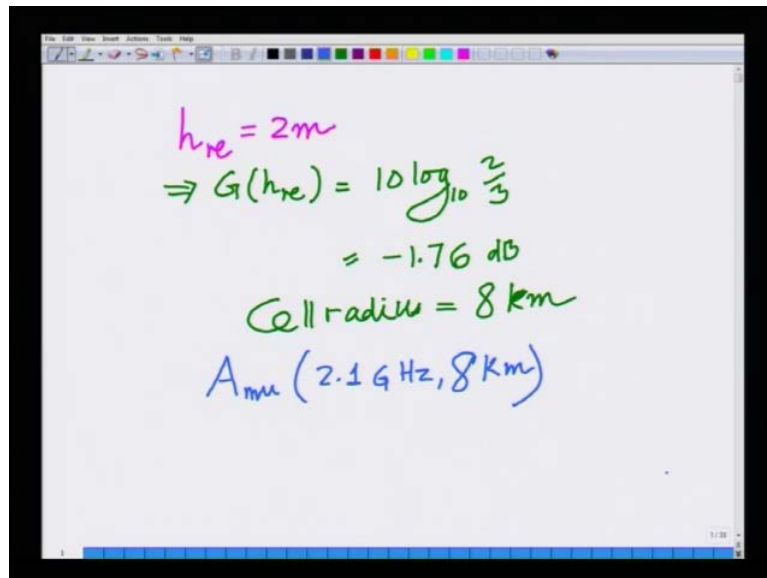 File Edit View Insert Actions Tools Help
B I
h_re = 2m
⇒ G(h_re) = 10 log_10 2/3
= -1.76 dB
Cell radius = 8 km
A_mu (2.1 GHz, 8 Km)
1/38
1